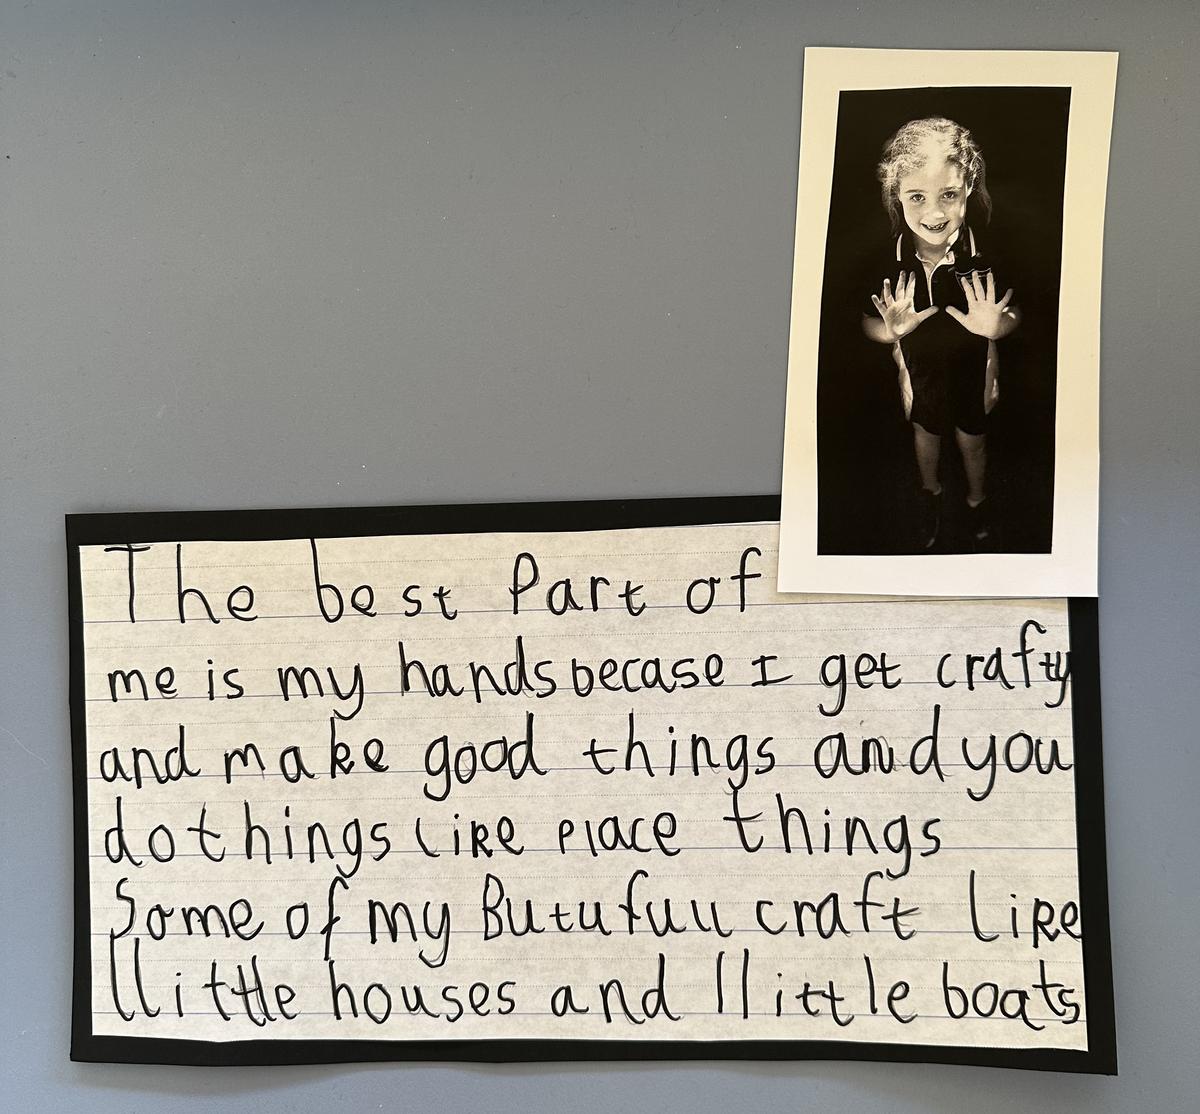 The best Part of
me is my hands becase I get crafty
and make good things and you
do things like place things
Some of my Butufull craft like
llittle houses and llittle boats